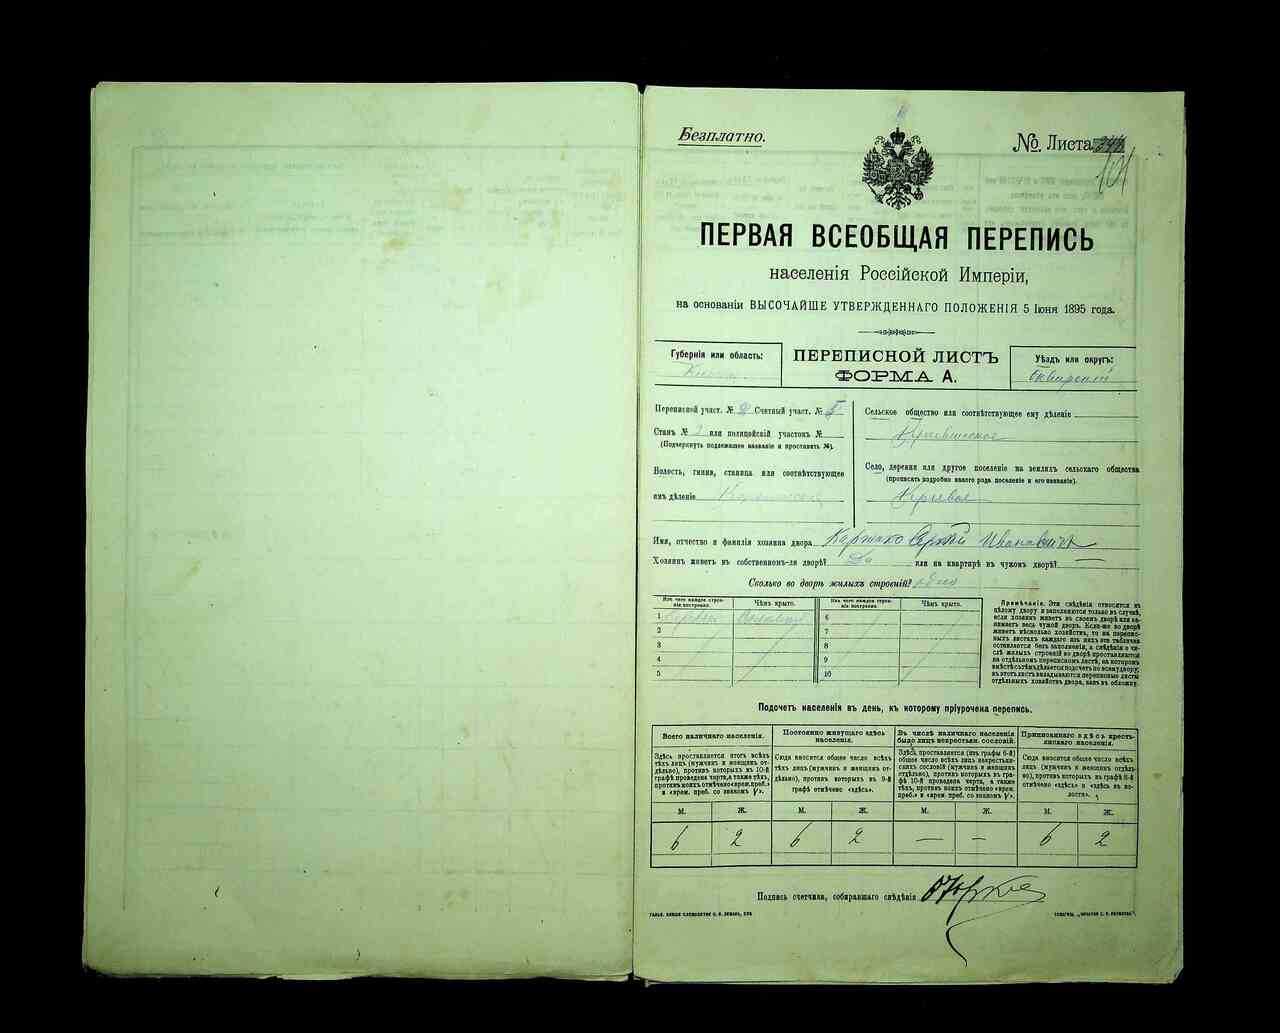 Безплатно.
№ Листа 101
ПЕРВАЯ ВСЕОБЩАЯ ПЕРЕПИСЬ
населенія Россійской Имперіи,
на основаніи ВЫСОЧАЙШЕ УТВЕРЖДЕННАГО ПОЛОЖЕНІЯ 5 Іюня 1895 года.
Губернія или область:
ПЕРЕПИСНОЙ ЛИСТЪ
ФОРМА А.
Уѣздъ или округъ:
Сквирскій
Переписной участ. № Счетный участ. №
Станъ № 2 или полицейскій участокъ №
(Подчеркнуть подлежащее названіе и проставить №).
Волость, гмина, станица или соотвѣтствующее
имъ дѣленіе
Сельское общество или соотвѣтствующее ему дѣленіе
Село, деревня или другое поселеніе на земляхъ сельскаго общества
(прописать подробно какого рода поселеніе и его названіе).
Кривое
Имя, отчество и фамилія хозяина двора Каржако Сергій Ивановичъ
Хозяинъ живетъ въ собственномъ-ли дворѣ? Да или на квартирѣ въ чужомъ дворѣ? —
Сколько во дворѣ жилыхъ строеній? одно
Изъ чего каждое строеніе построено.
Чѣмъ крыто.
Изъ чего каждое строеніе построено.
Чѣмъ крыто.
1
2
3
4
5
6
7
8
9
10
Примѣчаніе. Эти свѣдѣнія относятся къ
цѣлому двору и заполняются только въ случаѣ,
если хозяинъ живетъ въ своемъ дворѣ или занимаетъ
весь чужой дворъ. Если-же во дворѣ
живетъ нѣсколько хозяйствъ, то на переписныхъ
листахъ каждаго изъ нихъ эта табличка
оставляется безъ заполненія, а свѣдѣнія о числѣ
жилыхъ строеній во дворѣ проставляются
на отдѣльномъ переписномъ листѣ, на которомъ
вмѣстѣ съ тѣмъ дѣлается подсчетъ по всему двору;
въ этотъ листъ вкладываются переписные листы
отдѣльныхъ хозяйствъ двора, какъ въ обложку.
Подсчетъ населенія въ день, къ которому пріурочена перепись.
Всего наличнаго населенія.
Здѣсь проставляется итогъ всѣхъ
тѣхъ лицъ (мужчинъ и женщинъ отдѣльно),
противъ которыхъ въ 10-й
графѣ проведена черта, а также тѣхъ,
противъ коихъ отмѣчено «врем. преб.»
и «врем. преб. со знакомъ V».
Постоянно живущаго здѣсь
населенія.
Сюда вносится общее число всѣхъ
тѣхъ лицъ (мужчинъ и женщинъ отдѣльно),
противъ которыхъ въ 9-й
графѣ отмѣчено «здѣсь».
Въ числѣ наличнаго населенія
было лицъ некрестьян. сословій.
Здѣсь проставляется (изъ графы 6-й)
общее число всѣхъ лицъ некрестьянскихъ
сословій (мужчинъ и женщинъ
отдѣльно), противъ которыхъ въ графѣ
10-й проведена черта, а также
тѣхъ, противъ коихъ отмѣчено «врем.
преб.» и «врем. преб. со знакомъ V».
Приписаннаго здѣсь крестьянскаго
населенія.
Сюда вносится общее число всѣхъ
лицъ (мужчинъ и женщинъ отдѣльно),
противъ которыхъ въ графѣ 8-й
отмѣчено «здѣсь» и «здѣсь въ волости».
М. Ж. М. Ж. М. Ж. М. Ж.
6 2 6 2 — — 6 2
Подпись счетчика, собиравшаго свѣдѣнія